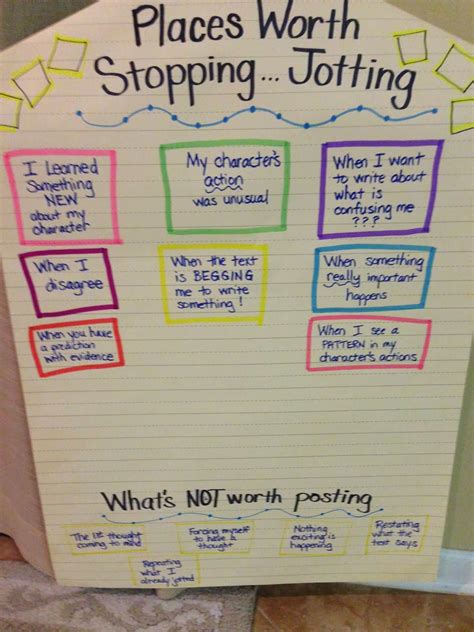 Places Worth
Stopping... Jotting
I learned
Something
NEW
about my
character
My character's
action
was unusual
When I want
to write about
what is
confusing me
???
When I
disagree
When the text
is BEGGING
me to write
something!
When something
really important
happens
When you have
a prediction
with evidence
When I see a
PATTERN in my
character's actions
What's NOT worth posting
The 1st thought
coming to mind
Forcing myself
to have a
thought
Nothing
exciting is
happening
Restating
what the
text says
Repeating
what I
already jotted